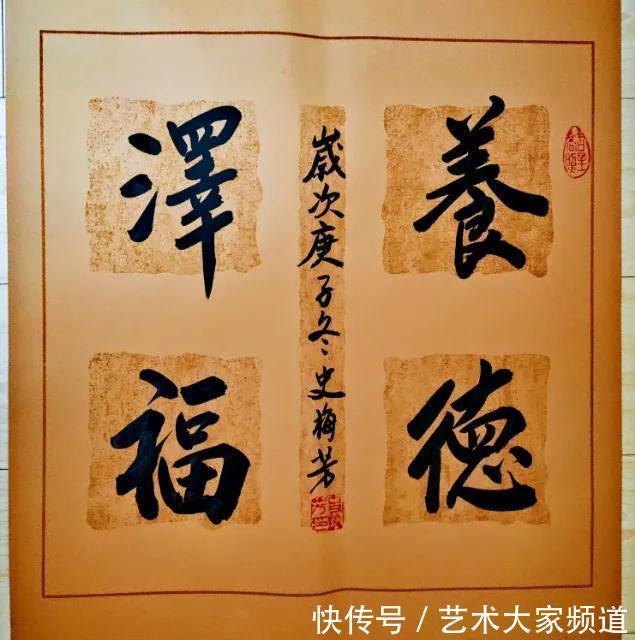 養德
澤福
歲次庚子冬史梅芳
快传号 / 艺术大家频道